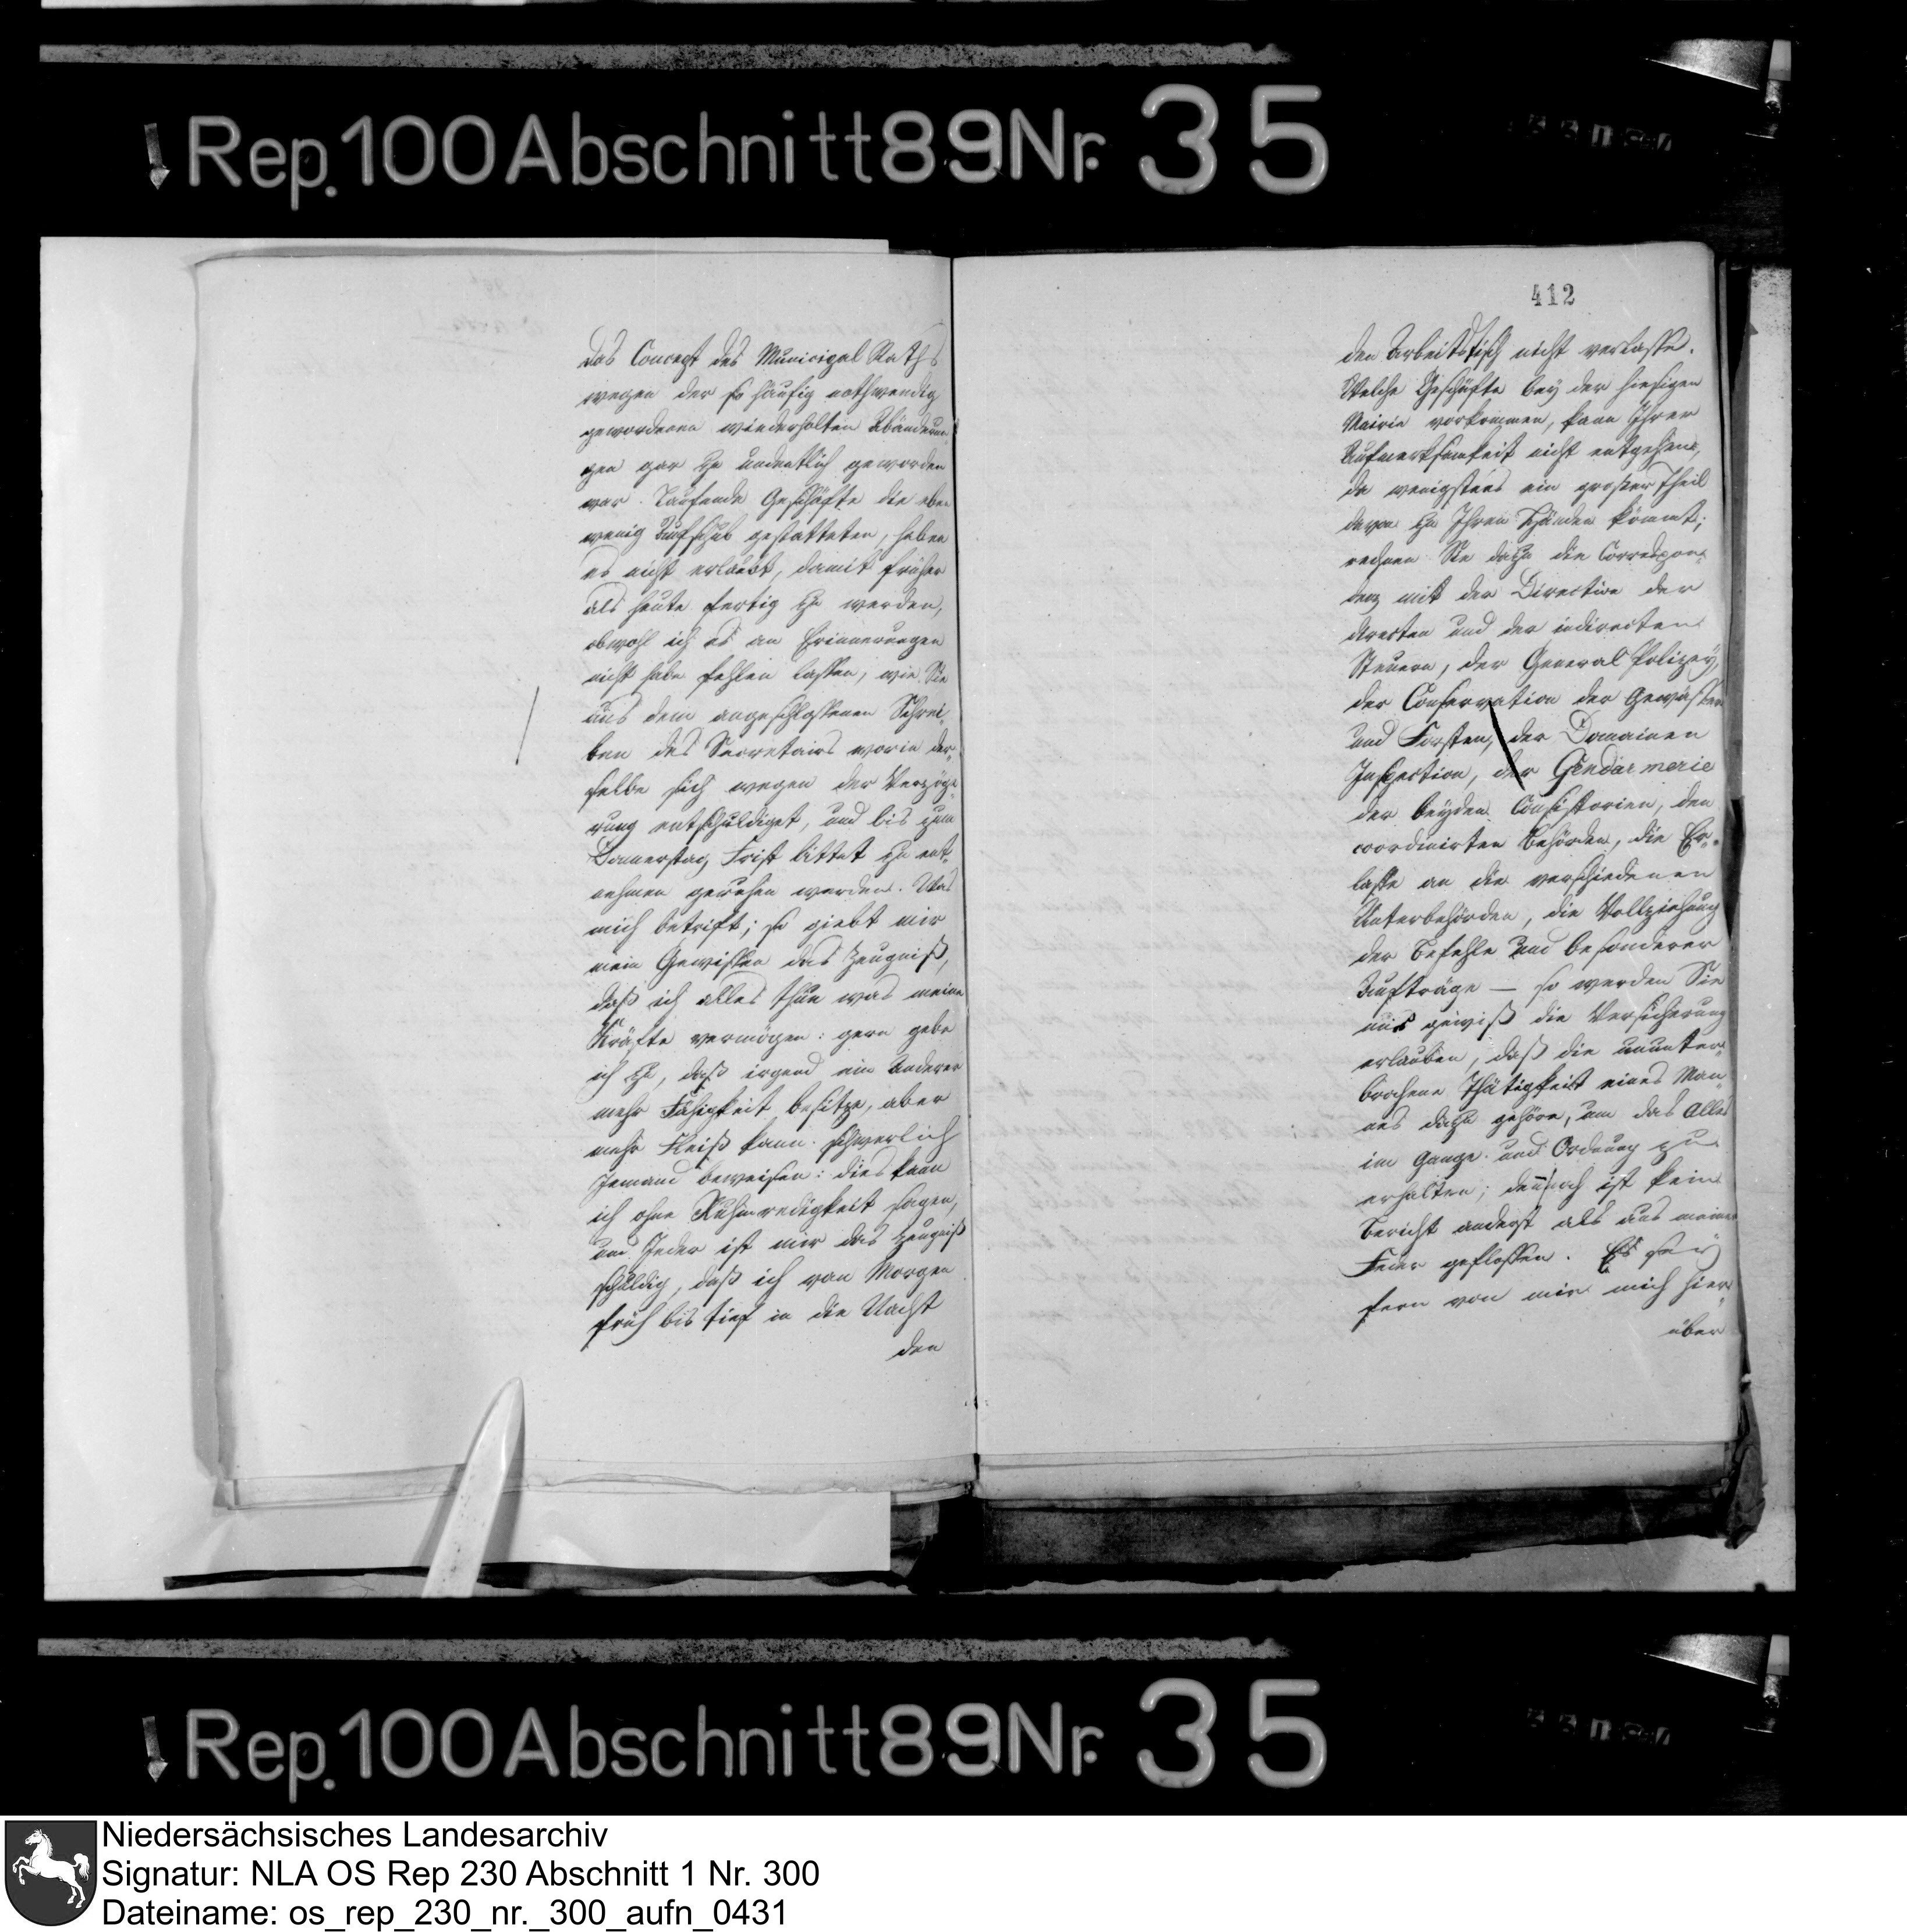 Rep. 100 Abschnitt 89 Nr. 35
das Concept des Municipal Raths
wegen der so häufig nothwendig
gewordenen wiederholten Abänderun¬
gen gar zu undeutlich geworden
war. Laufende Geschäfte die eben
wenig Aufschub gestatteten, haben
es nicht erlaubt, damit früher
als heute fertig zu werden,
obwohl ich es an Erinnerungen
nicht habe fehlen lassen, wie Sie
aus dem angeschlossenen Schrei¬
ben des Secretairs worin der¬
selbe sich wegen der Verzöge¬
rung entschuldiget, und bis zum
Donnerstag Frist bittet zu ent¬
nehmen geruhen werden. Was
mich betrift; so giebt mir
mein Gewissen das Zeugniß,
daß ich alles thue was meine
Kräfte vermögen: gern gebe
ich zu, daß irgend ein Anderer
mehr Fähigkeit besitze, aber
mehr Fleiß kann schwerlich
Jemand beweisen: dies kann
ich ohne Ruhmredigkeit sagen,
und Jeder ist mir das Zeugniß
schuldig, daß ich von Morgen
früh bis tief in die Nacht
den
412
den Arbeitstisch nicht verlasse.
Welche Geschäfte bey der hiesigen
Mairie vorkommen, kann Ihrer
Aufmerksamkeit nicht entgehen,
da wenigstens ein großer Theil
davon zu Ihren Händen kömmt;
rechnen Sie dazu die Correspon¬
denz mit der Direction der
directen und der indirecten
Steuern, der General Polizey,
der Conservation der Gewässer
und Forsten, der Domainen
Inspection, der Gendarmerie
der beyden Consistorien, den
coordinirten Behörden, die Er¬
lasse an die verschiedenen
Unterbehörden, die Vollziehung
der Befehle und besonderer
Aufträge — so werden Sie
mir gewiß die Versicherung
erlauben, daß die ununter¬
brochene Thätigkeit eines Man¬
nes dazu gehöre, um das Alles
im Gange und Ordnung zu
erhalten; dennoch ist kein
Bericht anderst als aus meiner
Feder geflossen. Es sey
fern von mir mich hier¬
über
Rep. 100 Abschnitt 89 Nr. 35
Niedersächsisches Landesarchiv
Signatur: NLA OS Rep 230 Abschnitt 1 Nr. 300
Dateiname: os_rep_230_nr._300_aufn_0431